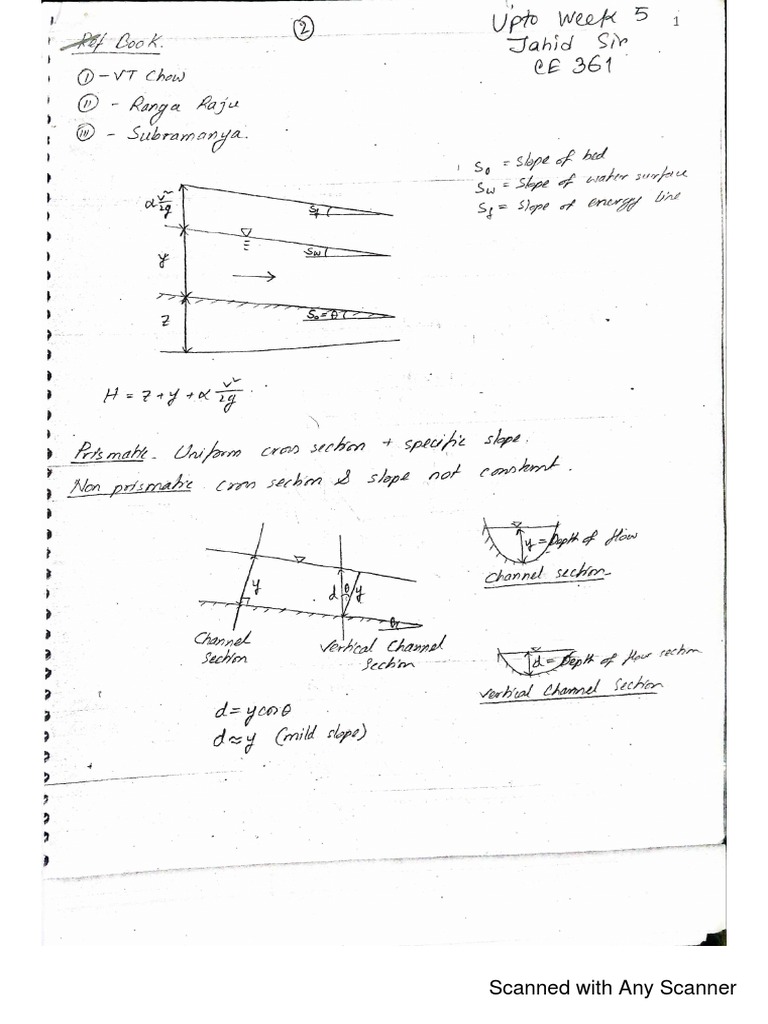 ② Upto Week 5 1
Ref Book. Jahid Sir
CE 361
Ⓘ - VT Chow
Ⓘⓘ - Ranga Raju
Ⓘⓘⓘ - Subramanya.
S₀ = Slope of bed
Sw = Slope of water surface
Sf = Slope of energy line
α v²/2g
Sf
y
Sw
S₀ = θ
Z
H = Z + y + α v²/2g .
Prismatic - Uniform cross section + specific slope.
Non prismatic cross section & slope not constant.
y
d θ y
θ
y = Depth of flow
Channel section
Channel Section
Vertical Channel Section
d = Depth of flow section
Vertical Channel Section
d = y cosθ
d ≈ y (mild slope)
Scanned with Any Scanner